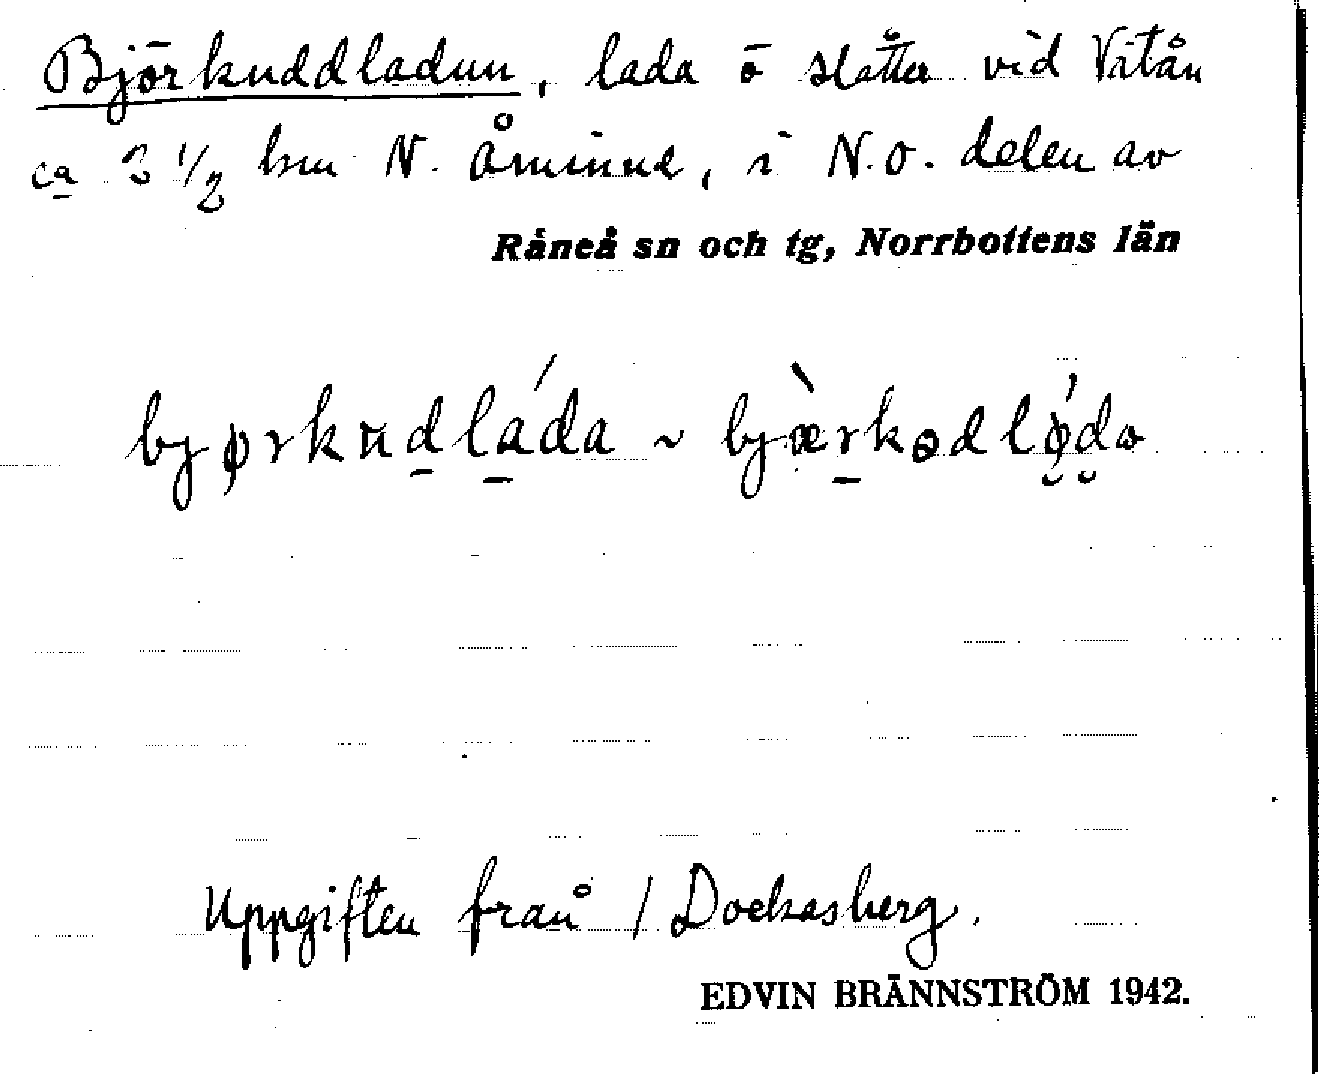 Björkuddladun, lada o slåtter vid Vitån
ca 3 1/2 km N. Åminne, i N.O. delen av
Råneå sn och tg, Norrbottens län
bjørkudláda ~ bjæ̀rkədlǿda
Uppgiften från / Dockasberg.
EDVIN BRÄNNSTRÖM 1942.